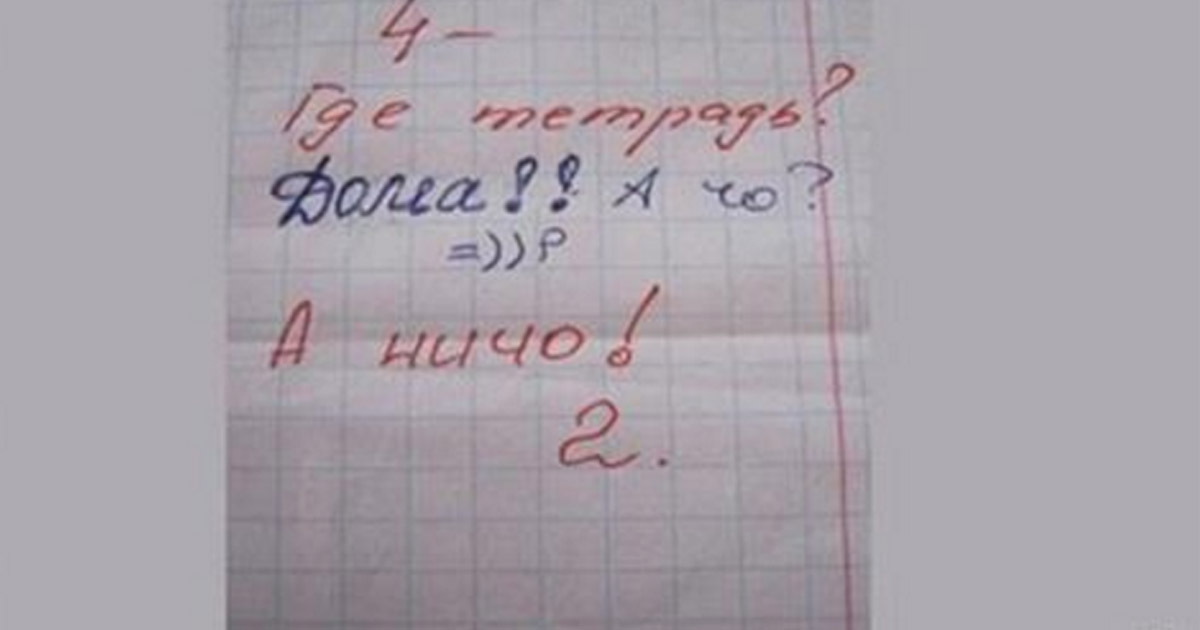 4 –
Где тетрадь?
Дома!! А чо?
=))?
А ничо!
2.